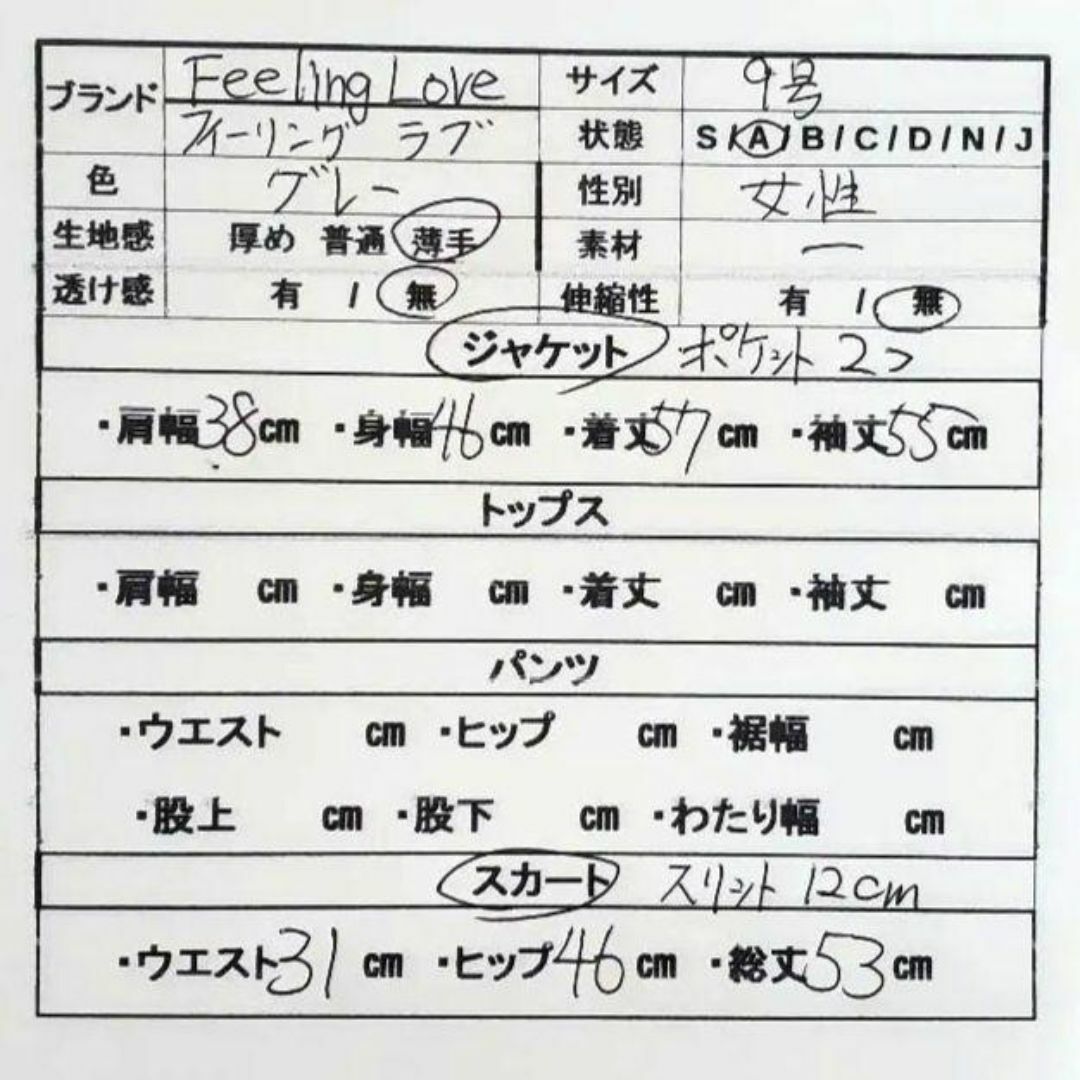 ブランド Feeling Love サイズ 9号
フィーリング ラブ 状態 S/A/B/C/D/N/J
色 グレー 性別 女性
生地感 厚め 普通 薄手 素材 ー
透け感 有 / 無 伸縮性 有 / 無
ジャケット ポケット 2つ
・肩幅38cm ・身幅46cm ・着丈57cm ・袖丈55cm
トップス
・肩幅 cm ・身幅 cm ・着丈 cm ・袖丈 cm
パンツ
・ウエスト cm ・ヒップ cm ・裾幅 cm
・股上 cm ・股下 cm ・わたり幅 cm
スカート スリット 12cm
・ウエスト31cm ・ヒップ46cm ・総丈53cm